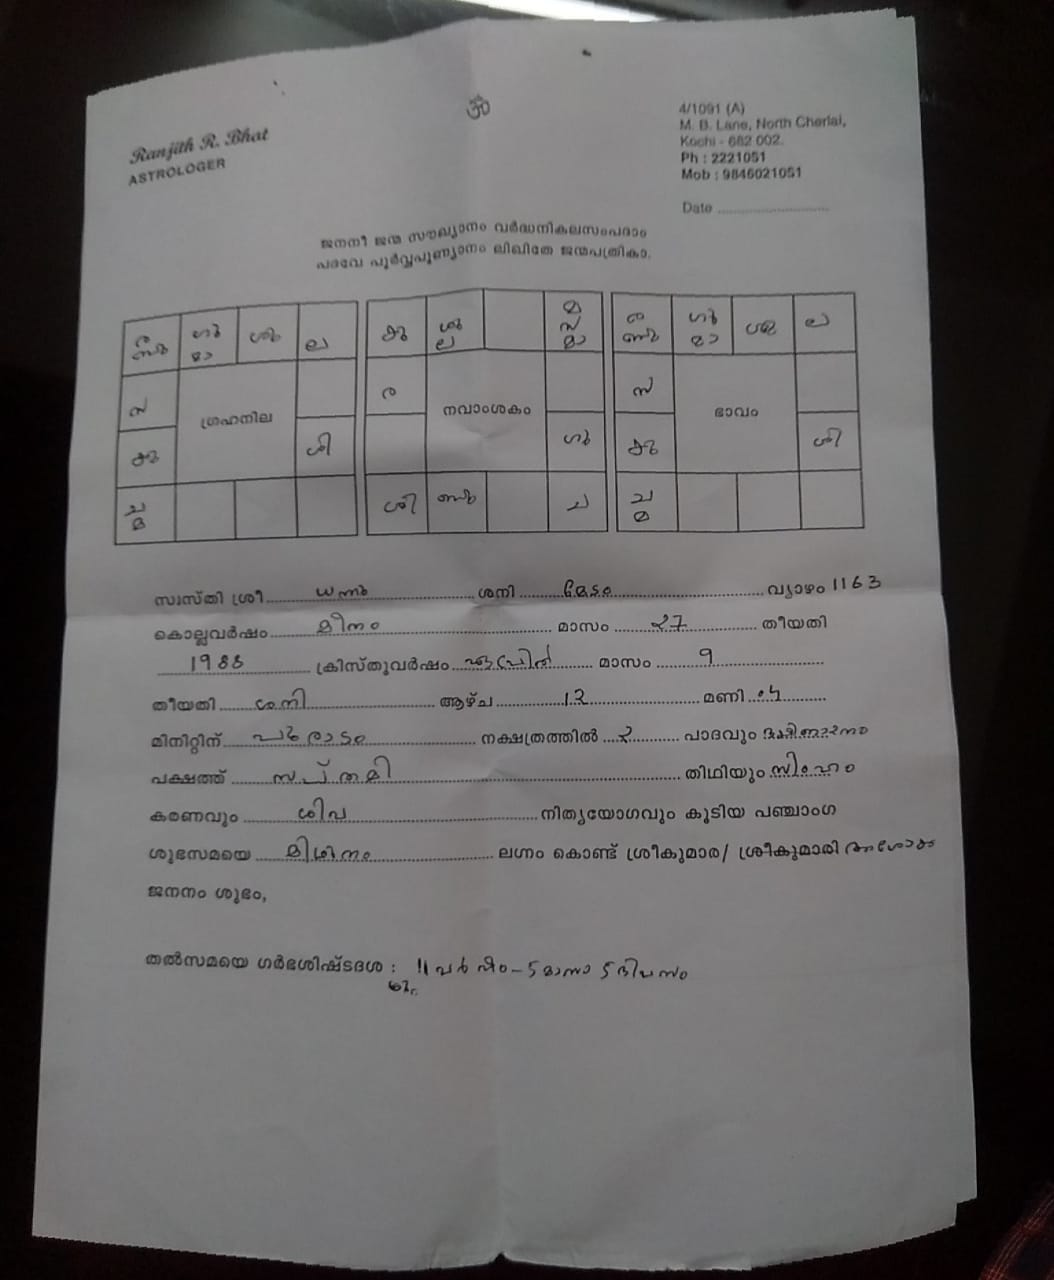 ॐ
Ranjith R. Bhat
ASTROLOGER
4/1091 (A)
M. B. Lane, North Cherlai,
Kochi - 682 002.
Ph : 2221051
Mob : 9846021051
Date
ജനനീ ജന്മ സൗഖ്യാനം വർദ്ധനികുലസംപദാം
പദവേ പൂർവ്വപുണ്യാനം ലിഖിതേ ജന്മപത്രികാ.
ഗു ശു ല കു ശു ല മ സ മാ ഗു ല
മാ മാ
സ ഗ്രഹനില ര നവാംശകം സ ഭാവം
കു ശി ഗു കു ശി
ച മ ശി ച ച മ
സ്വസ്തി ശ്രീ ധനു ശനി മേടം വ്യാഴം 1163
കൊല്ലവർഷം മീനം മാസം 27 തീയതി
1988 ക്രിസ്തുവർഷം ഏപ്രിൽ മാസം 9
തീയതി ശനി ആഴ്ച 12 മണി
മിനിറ്റിന് പൂരാടം നക്ഷത്രത്തിൽ 2 പാദവും
പക്ഷത്ത് സപ്തമി തിഥിയും സിംഹം
കരണവും ശിവ നിത്യയോഗവും കൂടിയ പഞ്ചാംഗ
ശുഭസമയെ മിഥുനം ലഗ്നം കൊണ്ട് ശ്രീകുമാര/ ശ്രീകുമാരി
ജനനം ശുഭം,
തൽസമയെ ഗർഭശിഷ്ടദശ : 11 വർഷം - 5 മാസം 5 ദിവസം